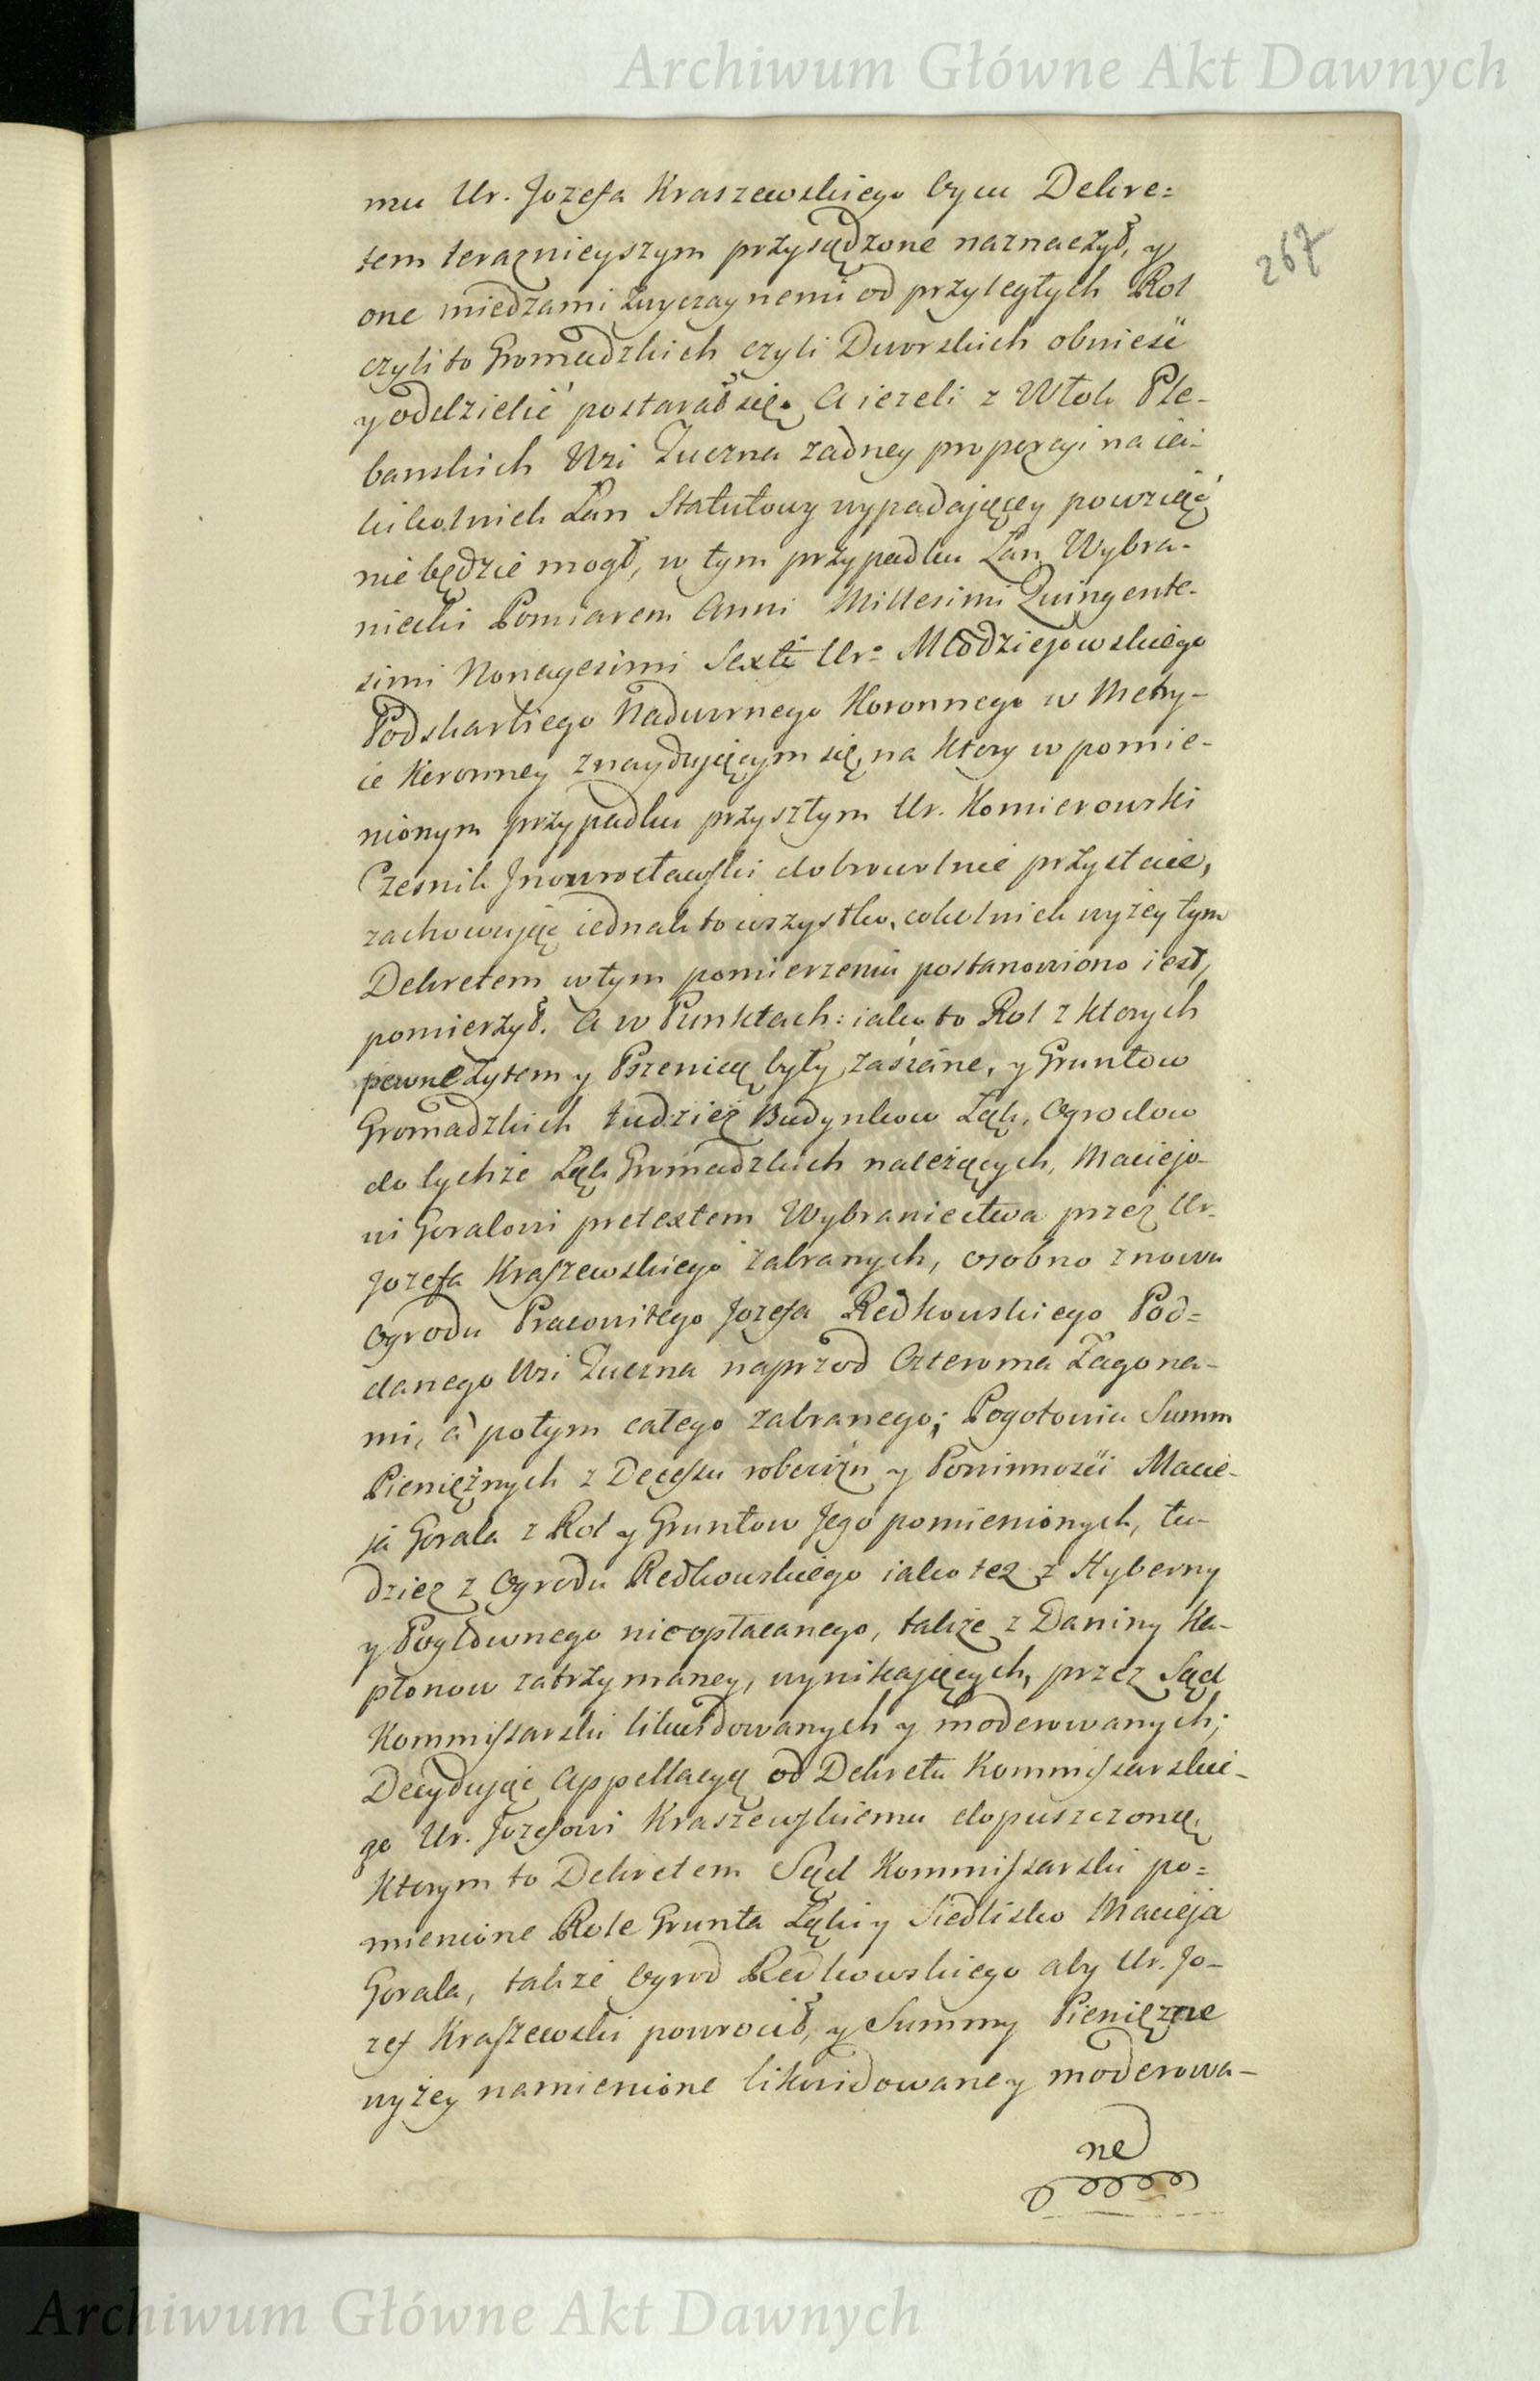 Archiwum Główne Akt Dawnych
267
mu Ur. Jozefa Kraszewskiego Oycu Dekre=
tem teraznieyszym przysądzone naznaczył, y
one miedzami zwyczaynemi od przyległych Rol
czyli to Gromadzkich czyli Dworskich obnieść
y oddzielić postarał się. A iezeli z Włok Ple-
banskich Wsi Zuczna zadney proporcyi na ia-
kikolwiek Łan Statutowy wypadającey powziąć
nie będzie mogł, w tym przypadku Łan Wybra-
niecki Pomiarem Anni Millesimi Quingente-
simi Nonagesimi Sexti Ur: Młodziejowskiego
Podskarbiego Nadwornego Koronnego w Metry-
ce Koronney znayduiącym się, na ktory w pomie-
nionym przypadku przyszłym Ur. Komierowski
Czesnik Jnowrocławski dobrowolnie przystaie,
zachowuiąc iednak to wszystko, cokolwiek wyżey tym
Dekretem w tym pomierzeniu postanowiono iest,
pomierzył. A w Punktach: iako to Rol z ktorych
pewne Zytem y Pszenicą były zasiane, y Gruntow
Gromadzkich tudziez Budynkow Łąk, Ogrodow
do tychże Łąk Gromadzkich należących, Maciejo-
wi Goralowi pretextem Wybraniectwa przez Ur.
Jozefa Kraszewskiego zabranych, osobno znowu
Ogrodu Pracowitego Jozefa Redkowskiego Pod=
danego Wsi Zuczna naprzod Czteroma Zagona-
mi, a potym całego zabranego; Pogotowiu Summ
Pieniężnych z Decessu robocizn y Powinności Macie-
ja Gorala z Rol y Gruntow Jego pomienionych, tu-
dziez z Ogrodu Redkowskiego iako tez z Hyberny
y Pogłownego nieopłacanego, także z Daniny Ka-
płonow zatrzymaney, wynikających, przez Sąd
Kommissarski likwidowanych y moderowanych;
Decyduiąc Appellacyą od Dekretu Kommissarskie-
go Ur. Jozefowi Kraszewskiemu dopuszczoną,
Ktorym to Dekretem Sąd Kommissarski po=
mienione Role Grunta Łąki y Siedlisko Macieja
Gorala, także Ogrod Redkowskiego aby Ur. Jo-
zef Kraszewski powrocił, y Summy Pieniężne
wyżey namienione likwidowane y moderowa-
ne
Archiwum Główne Akt Dawnych